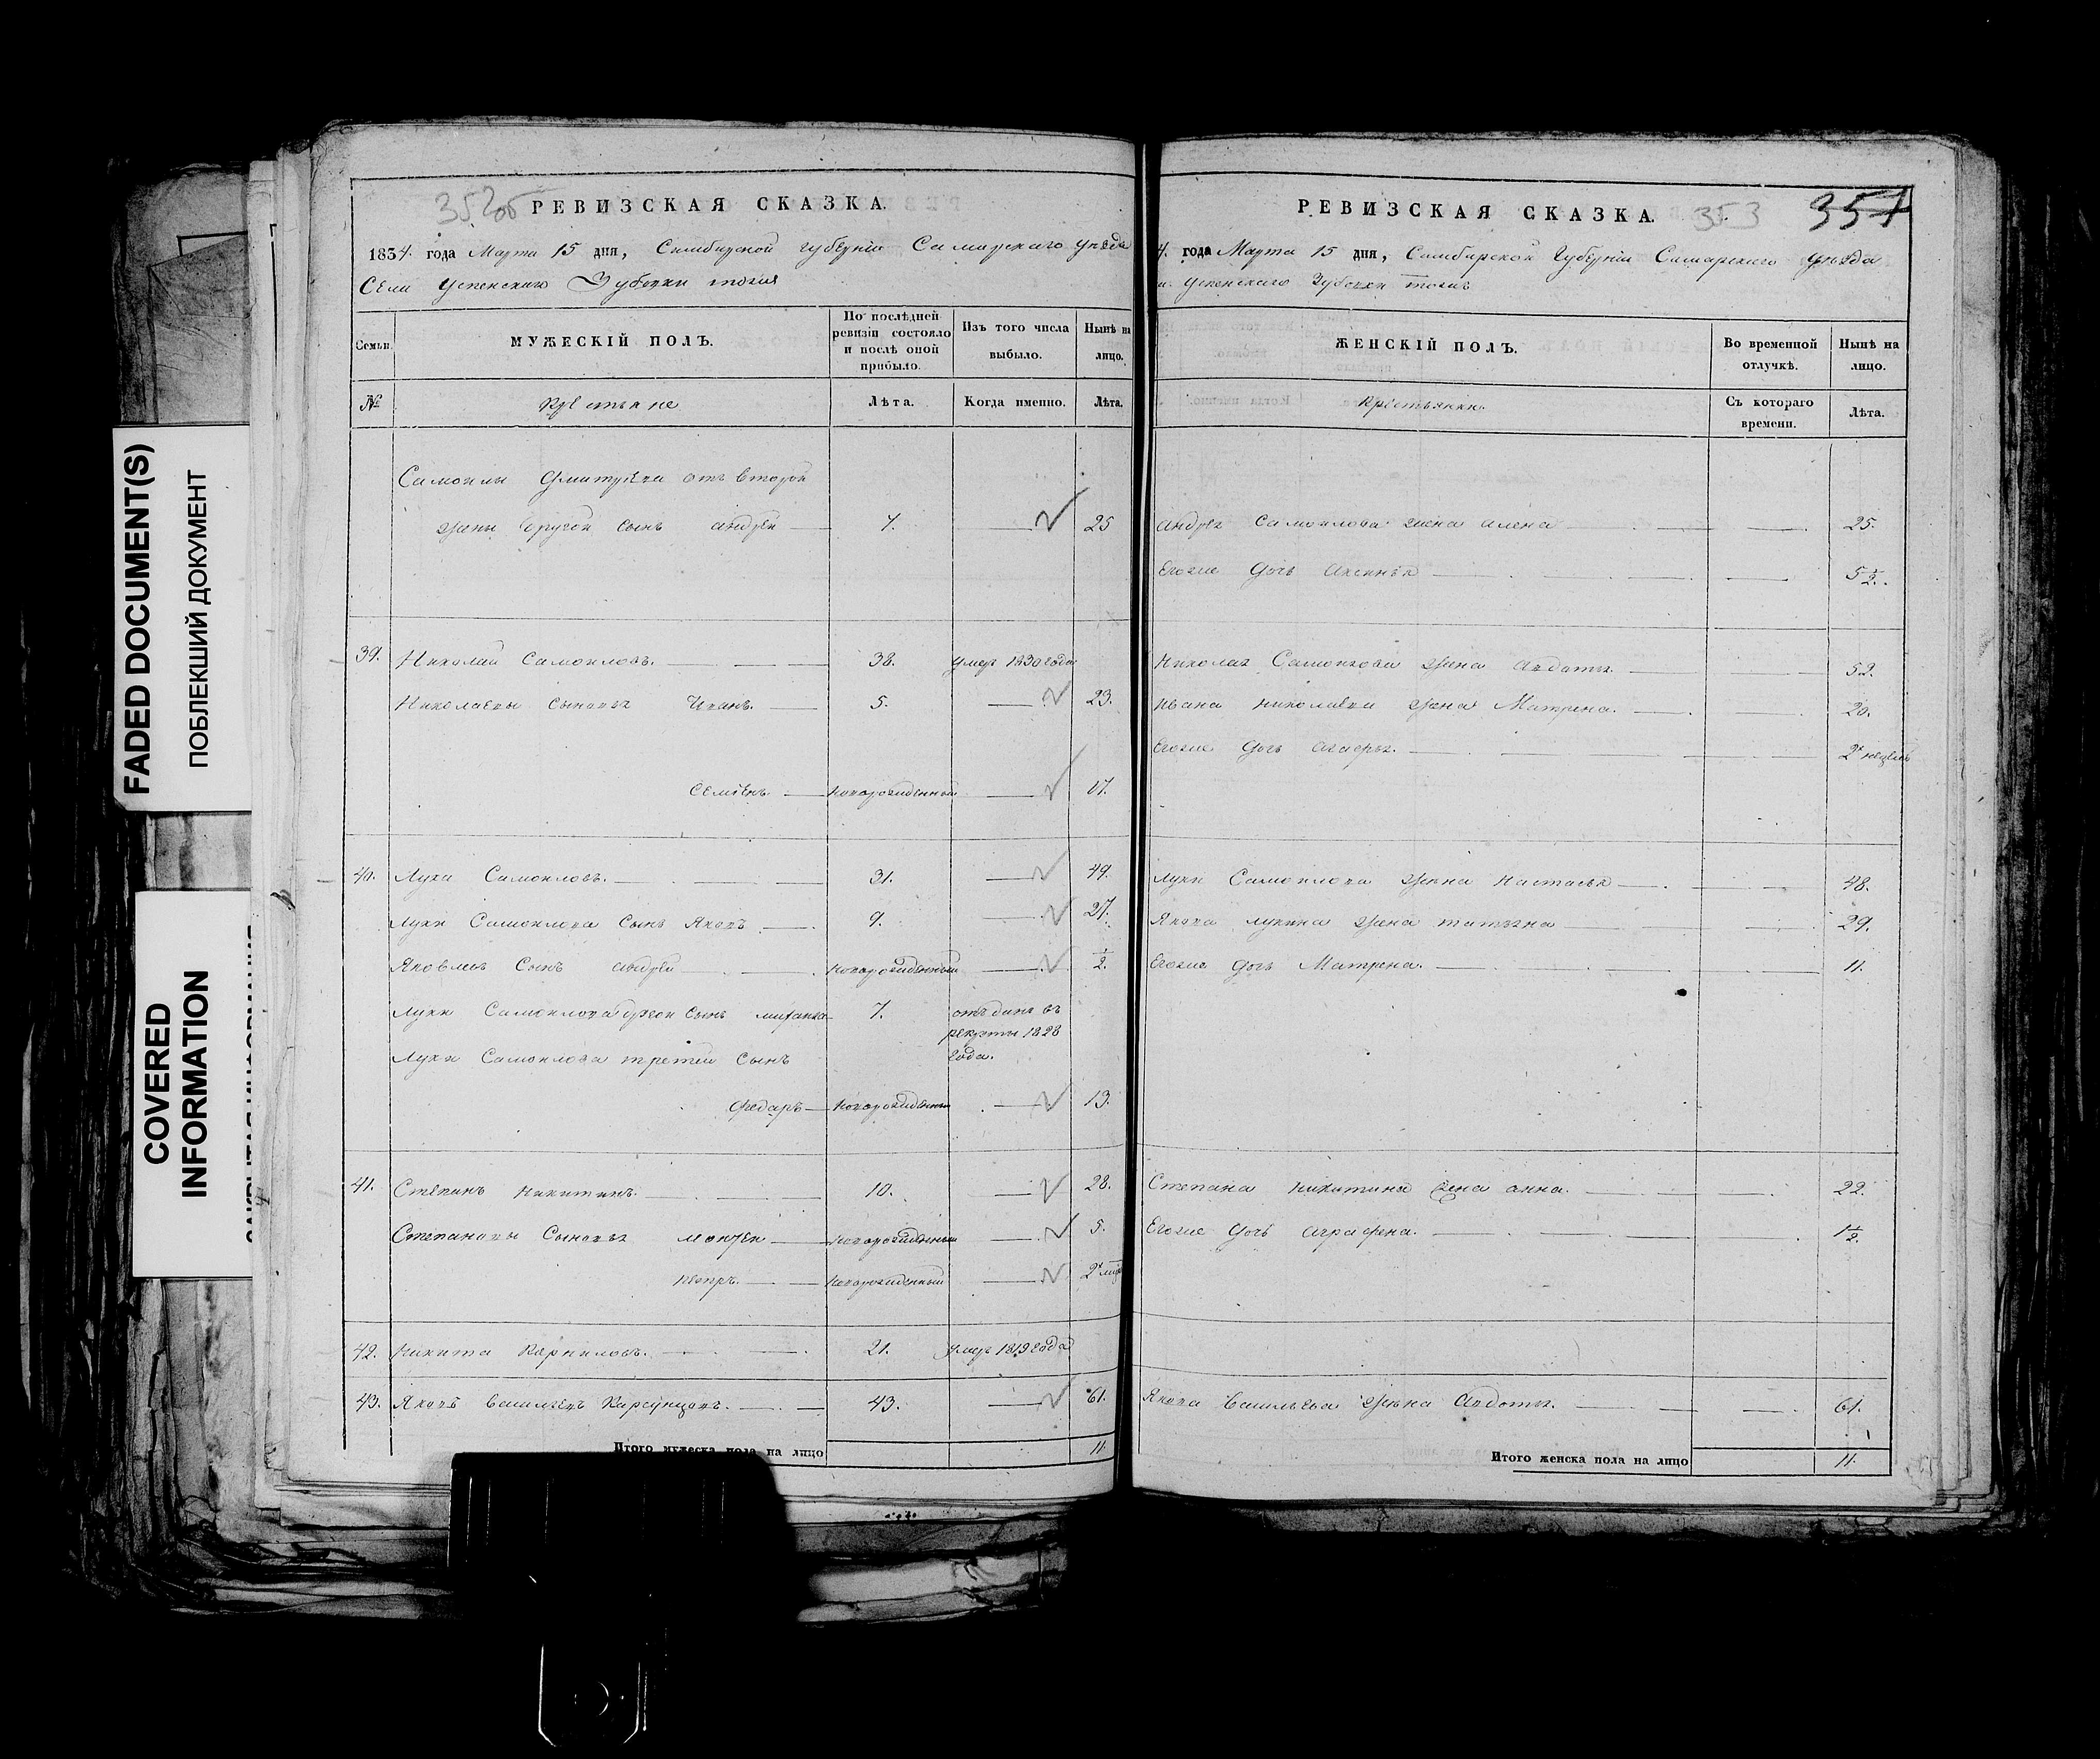 FADED DOCUMENT(S)
ПОБЛЕКШИЙ ДОКУМЕНТ
COVERED
INFORMATION
352об
РЕВИЗСКАЯ СКАЗКА.
1834. года Марта 15 дня, Симбирской губернiи Самарскаго уѣзда
Села Успенскаго Зубовки тожъ
Семьи.
МУЖЕСКІЙ ПОЛЪ.
По послѣдней
ревизіи состояло
и послѣ оной
прибыло.
Изъ того числа
выбыло.
Нынѣ на
лицо.
№
Крестьяне
Лѣта.
Когда именно.
Лѣта.
Самойлы Дмитриева отъ второй
жены другой сынъ андрей 7. 25
39. Николай Самойловъ. 38. умер 1830 года
Николаевы сыновья Иванъ. 5. 23.
Семёнъ. новорожденный 17.
40. Лука Самойловъ. 31. 49.
Луки Самойлова сынъ Яковъ 9. 27.
Яковлевъ сынъ андрей новорожденный 1/2.
Луки Самойлова другой сынъ 7. отъданъ въ
рекруты 1828
Луки Самойлова третей сынъ года.
Федаръ новорожденный 13.
41. Степанъ Никитинъ. 10. 28.
Степановы сыновья новорожденный 5.
Петръ. новорожденный
42. Никита 21. умер 1819 года
43. Яковъ Васильевъ Карсунцовъ. 43. 61.
Итого мужеска пола на лицо 11
353 357
РЕВИЗСКАЯ СКАЗКА.
4. года Марта 15 дня, Симбирской Губернiи Самарскаго уѣзда
Успенскаго Зубовки тожъ
ЖЕНСКІЙ ПОЛЪ.
Во временной
отлучкѣ.
Нынѣ на
лицо.
Крестьянки.
Съ котораго
времени.
Лѣта.
андрея Самойлова жена алена 25.
Егоже дочь Аксинья 5 1/2.
Николая Самойлова жена Авдотья 52.
Ивана Николаева жена Матрена. 20.
Егоже дочь Агафья. 2х недель
Луки Самойлова жена Настасья 48.
Якова лукина жена татьяна 29.
Егоже дочь Матрена. 11.
Степана Никитина жена анна. 22.
Егоже дочь аграфена. 1 1/2.
Якова Васильева жена Авдотья. 61.
Итого женска пола на лицо 11.